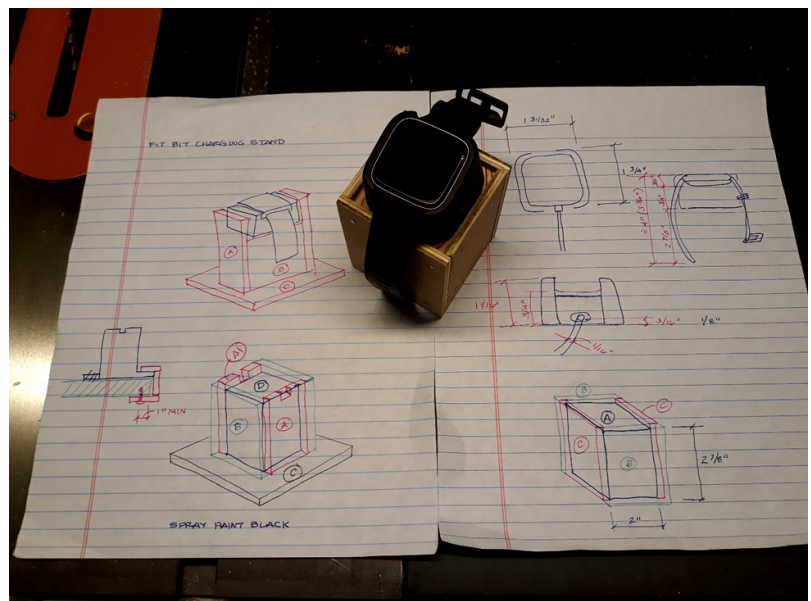 FIT BIT CHARGING STAND
A
B
C
1" MIN
A1
D
B
A
C
SPRAY PAINT BLACK
1 3/4"
1 1/16"
3/4"
3/16"
1/8"
1/16"
2 7/8"
B
C
A
C
B
2 7/8"
2"